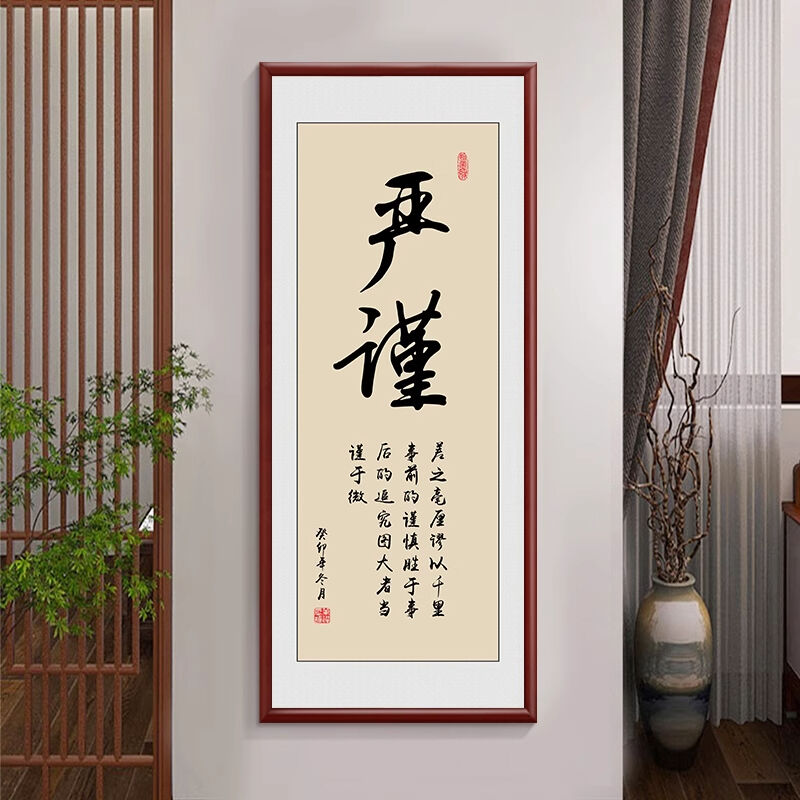 严谨
差之毫厘谬以千里
事前的谨慎胜于事
后的追究因大者当
谨于微
癸卯年冬月